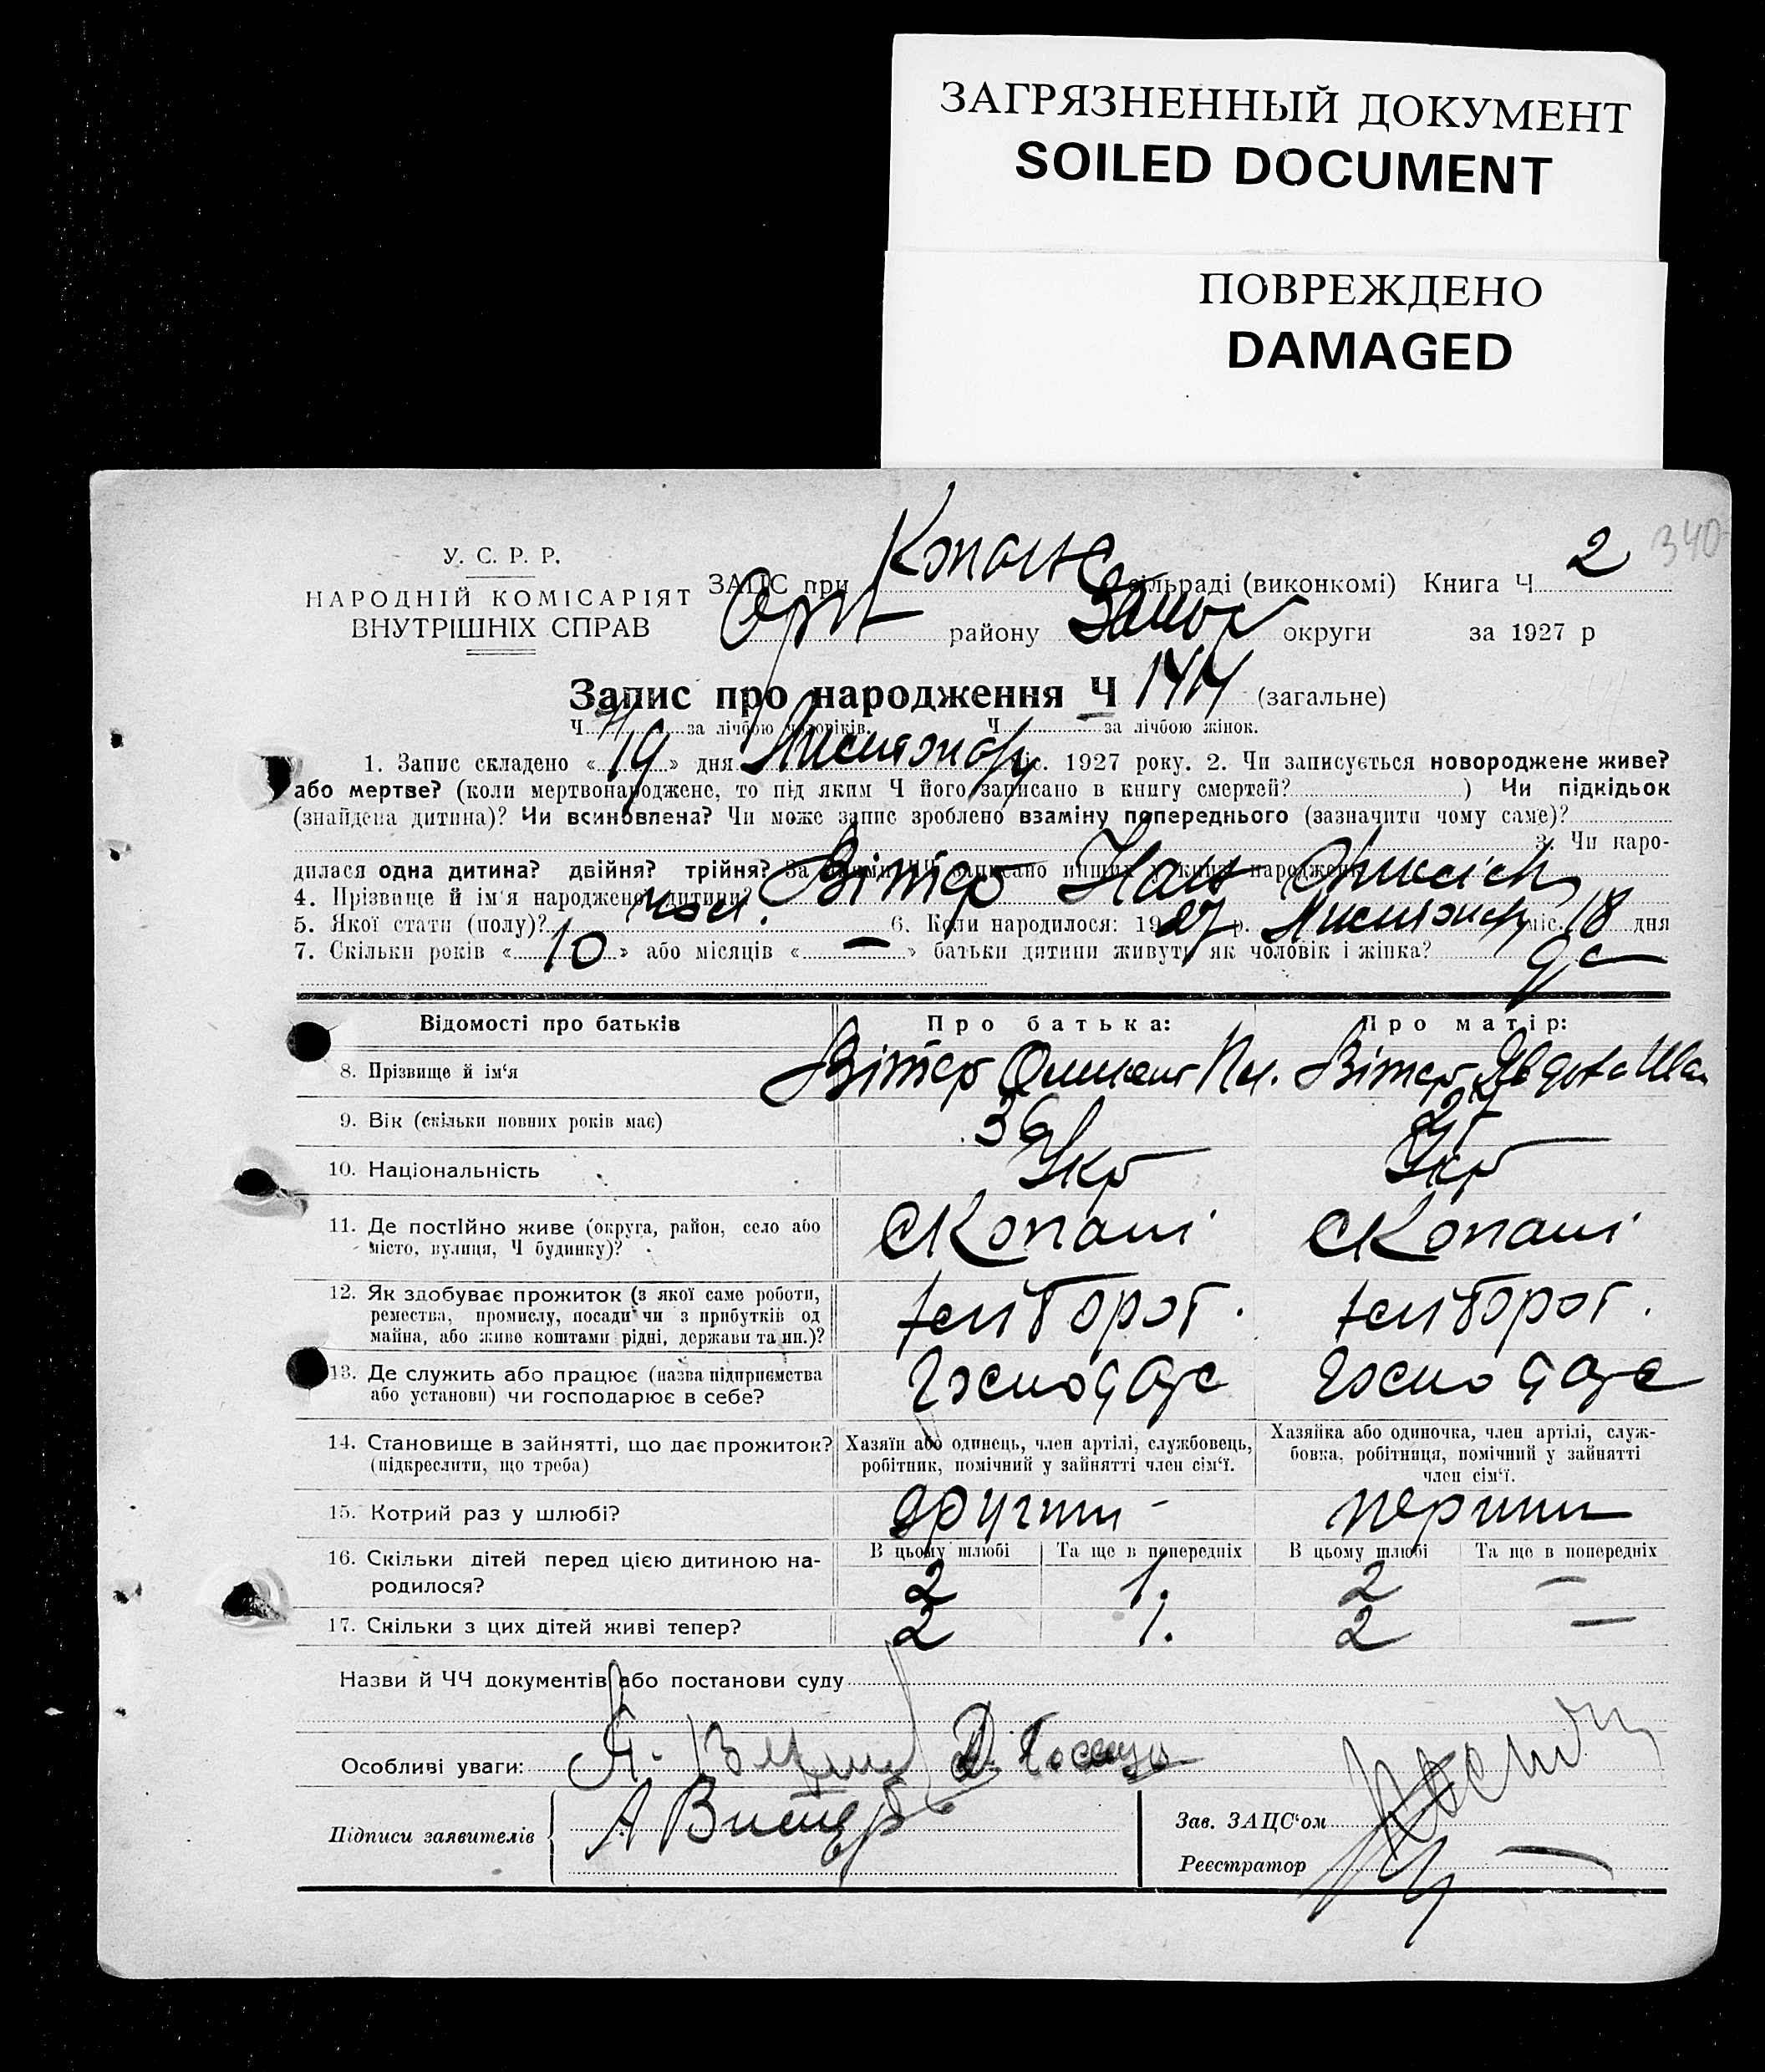 ЗАГРЯЗНЕННЫЙ ДОКУМЕНТ
SOILED DOCUMENT
ПОВРЕЖДЕНО
DAMAGED
340
У. С. Р. Р.
НАРОДНІЙ КОМІСАРІЯТ
ВНУТРІШНІХ СПРАВ
ЗАПС при сільраді (виконкомі) Книга Ч 2
Оріх району Запор округи за 1927 р
Запис про народження Ч (загальне)
Ч за лічбою чоловіків. Ч за лічбою жінок.
1. Запис складено « 19 » дня Листопаду міс. 1927 року. 2. Чи записується новороджене живе?
або мертве? (коли мертвонароджене, то під яким Ч його записано в книгу смертей? ) Чи підкідьок
(знайдена дитина)? Чи всиновлена? Чи може запис зроблено взаміну попереднього (зазначити чому саме)?
3. Чи наро-
дилася одна дитина? двійня? трійня? За якими ЧЧ записано инших у книзі народжень
4. Прізвище й ім'я народженої дитини? Вітер Іван
5. Якої стати (полу)? чол. 6. Коли народилося: 1927 р. Листопаду міс. 18 дня
7. Скільки років « 10 » або місяців « — » батьки дитини живуть як чоловік і жінка?
Відомості про батьків Про батька: Про матір:
8. Прізвище й ім'я Вітер Вітер Явдоха
9. Вік (скільки повних років має) 36
10. Національність Укр Укр
11. Де постійно живе (округа, район, село або
місто, вулиця, Ч будинку)? с Копані с Копані
12. Як здобуває прожиток (з якої саме роботи,
ремества, промислу, посади чи з прибутків од
майна, або живе коштами рідні, держави та ин.)? хлібороб. хлібороб.
13. Де служить або працює (назва підприємства
або установи) чи господарює в себе? Господарс Господарс
14. Становище в зайнятті, що дає прожиток?
(підкреслити, що треба)
Хазяїн або одинець, член артілі, службовець,
робітник, помічний у зайнятті член сім'ї.
Хазяйка або одиночка, член артілі, служ-
бовка, робітниця, помічний у зайнятті
член сім'ї.
15. Котрий раз у шлюбі? другий - перший
16. Скільки дітей перед цією дитиною на-
родилося?
В цьому шлюбі Та ще в попередніх В цьому шлюбі Та ще в попередніх
2 1. 2 —
17. Скільки з цих дітей живі тепер? 2 1. 2 —
Назви й ЧЧ документів або постанови суду
Особливі уваги:
Підписи заявителів А Витер
Зав. ЗАЦС'ом
Реєстратор